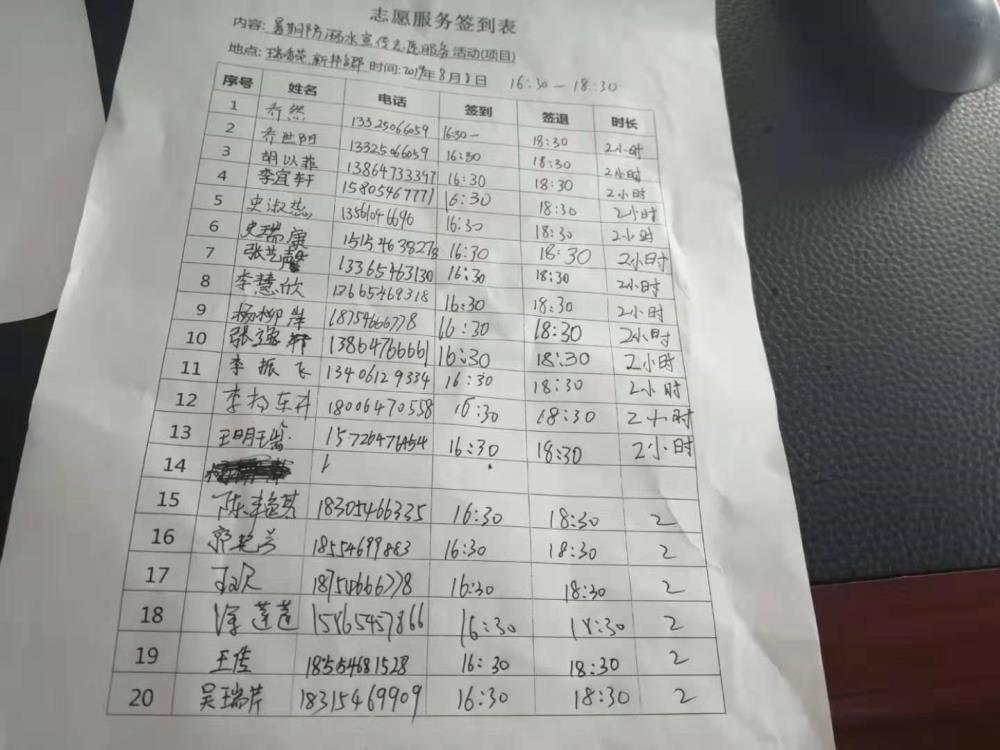 志愿服务签到表
内容: 暑期防溺水宣传志愿服务活动(项目)
地点: 时间:2019年8月8日 16:30-18:30
序号 姓名 电话 签到 签退 时长
1 乔然 13325066059 16:30 18:30 2小时
2 乔世阳 13325066059 16:30 18:30 2小时
3 胡以菲 13864733397 16:30 18:30 2小时
4 李宜轩 15805467771 16:30 18:30 2小时
5 史淑 13561046696 16:30 18:30 2小时
6 史瑞康 16:30 18:30 2小时
7 张芝馨 13365463130 16:30 18:30 2小时
8 李慧欣 16:30 18:30 2小时
9 杨柳岸 18754666778 16:30 18:30 2小时
10 13864766661 16:30 18:30 2小时
11 李振飞 13406129334 16:30 18:30 2小时
12 18006470558 16:30 18:30 2小时
13 16:30 18:30 2小时
14
15 18305466335 16:30 18:30 2
16 16:30 18:30 2
17 18754666778 16:30 18:30 2
18 莲莲 15865457866 16:30 18:30 2
19 王佳 18554681528 16:30 18:30 2
20 吴瑞芹 18315469909 16:30 18:30 2